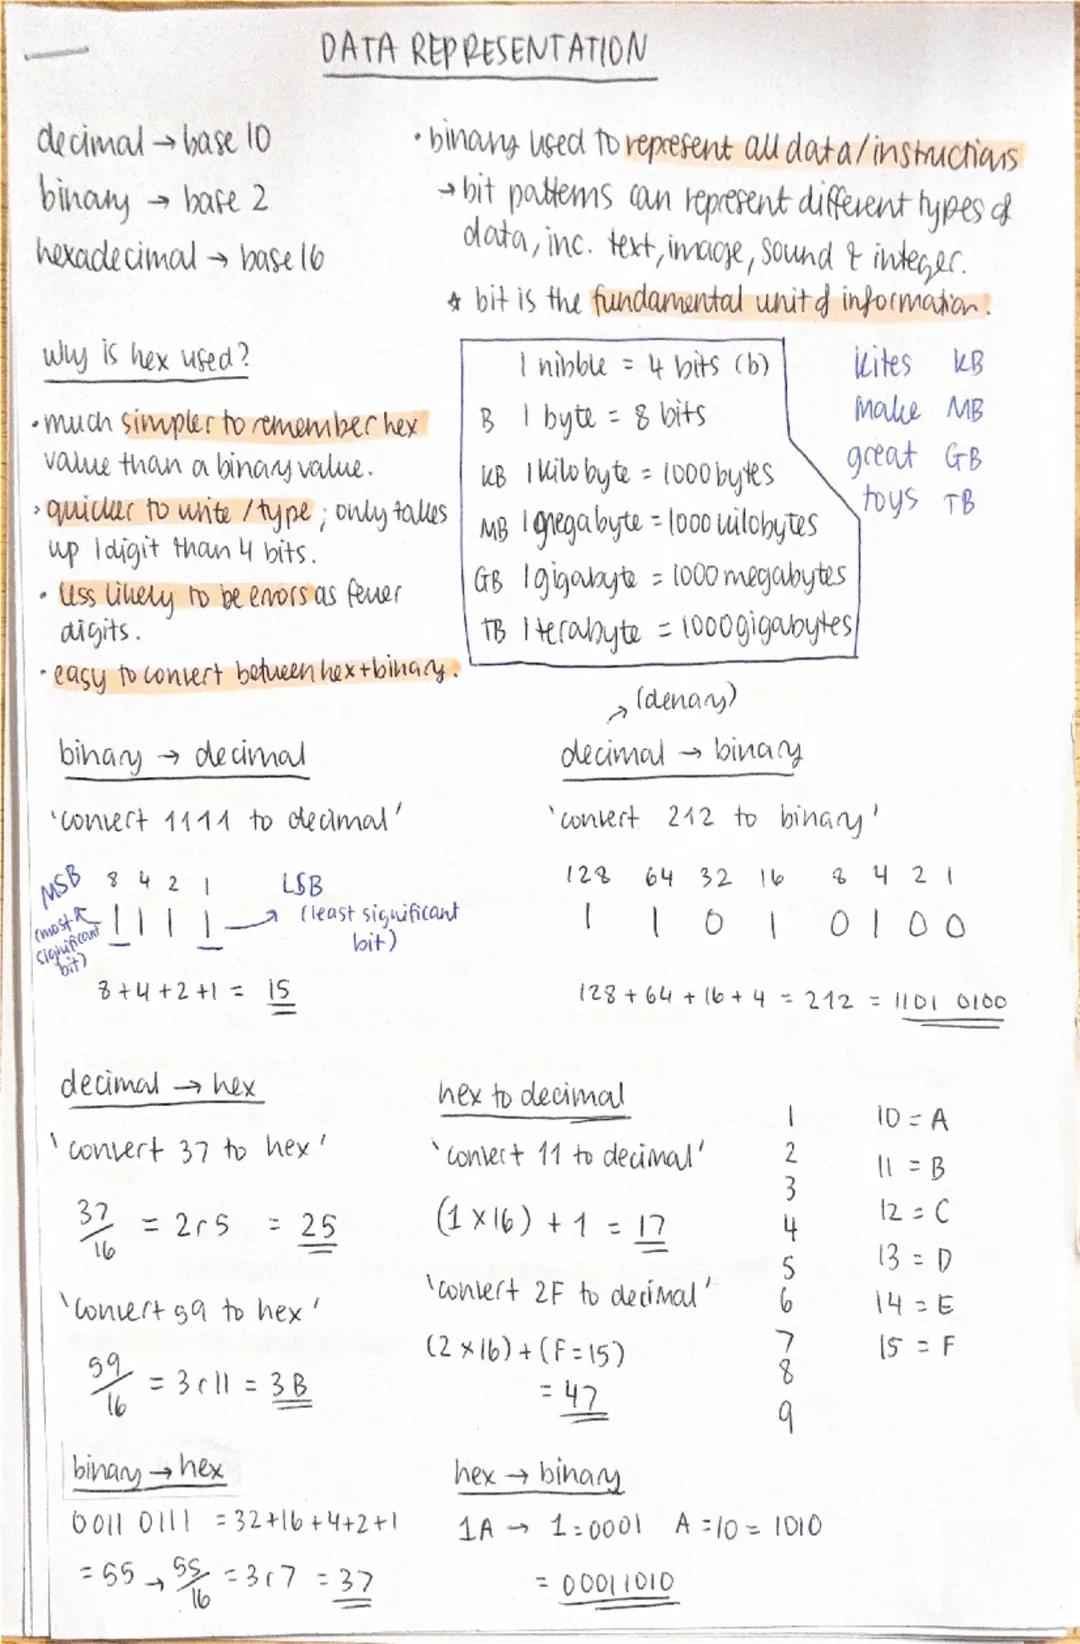 DATA REPRESENTATION
decimal → base 10
binary → base 2
hexadecimal → base 16
• binary used to represent all data/instructions
→ bit patterns can represent different types of
data, inc. text, image, sound & integer.
☆ bit is the fundamental unit of information!
why is hex used?
• much simpler to remember hex
value than a binary value.
• quicker to write / type ; only takes
up 1 digit than 4 bits.
• less likely to be errors as fewer
digits.
• easy to convert between hex + binary.
1 nibble = 4 bits (b)
B 1 byte = 8 bits
KB 1 kilobyte = 1000 bytes
MB 1 megabyte = 1000 kilobytes
GB 1 gigabyte = 1000 megabytes
TB 1 terabyte = 1000 gigabytes
kites KB
make MB
great GB
toys TB
binary → decimal
'convert 1111 to decimal'
MSB
(most
significant
bit)
8 4 2 1
1 1 1 1
LSB
(least significant
bit)
8 + 4 + 2 + 1 = 15
(denary)
decimal → binary
'convert 212 to binary'
128 64 32 16 8 4 2 1
1 1 0 1 0 1 0 0
128 + 64 + 16 + 4 = 212 = 1101 0100
decimal → hex
'convert 37 to hex'
37/16 = 2 r 5 = 25
'convert 59 to hex'
59/16 = 3 r 11 = 3B
hex to decimal
'convert 11 to decimal'
(1 × 16) + 1 = 17
'convert 2F to decimal'
(2 × 16) + (F = 15)
= 47
1
2
3
4
5
6
7
8
9
10 = A
11 = B
12 = C
13 = D
14 = E
15 = F
binary → hex
0011 0111 = 32+16+4+2+1
= 55 → 55/16 = 3 r 7 = 37
hex → binary
1A → 1 = 0001 A = 10 = 1010
= 00011010